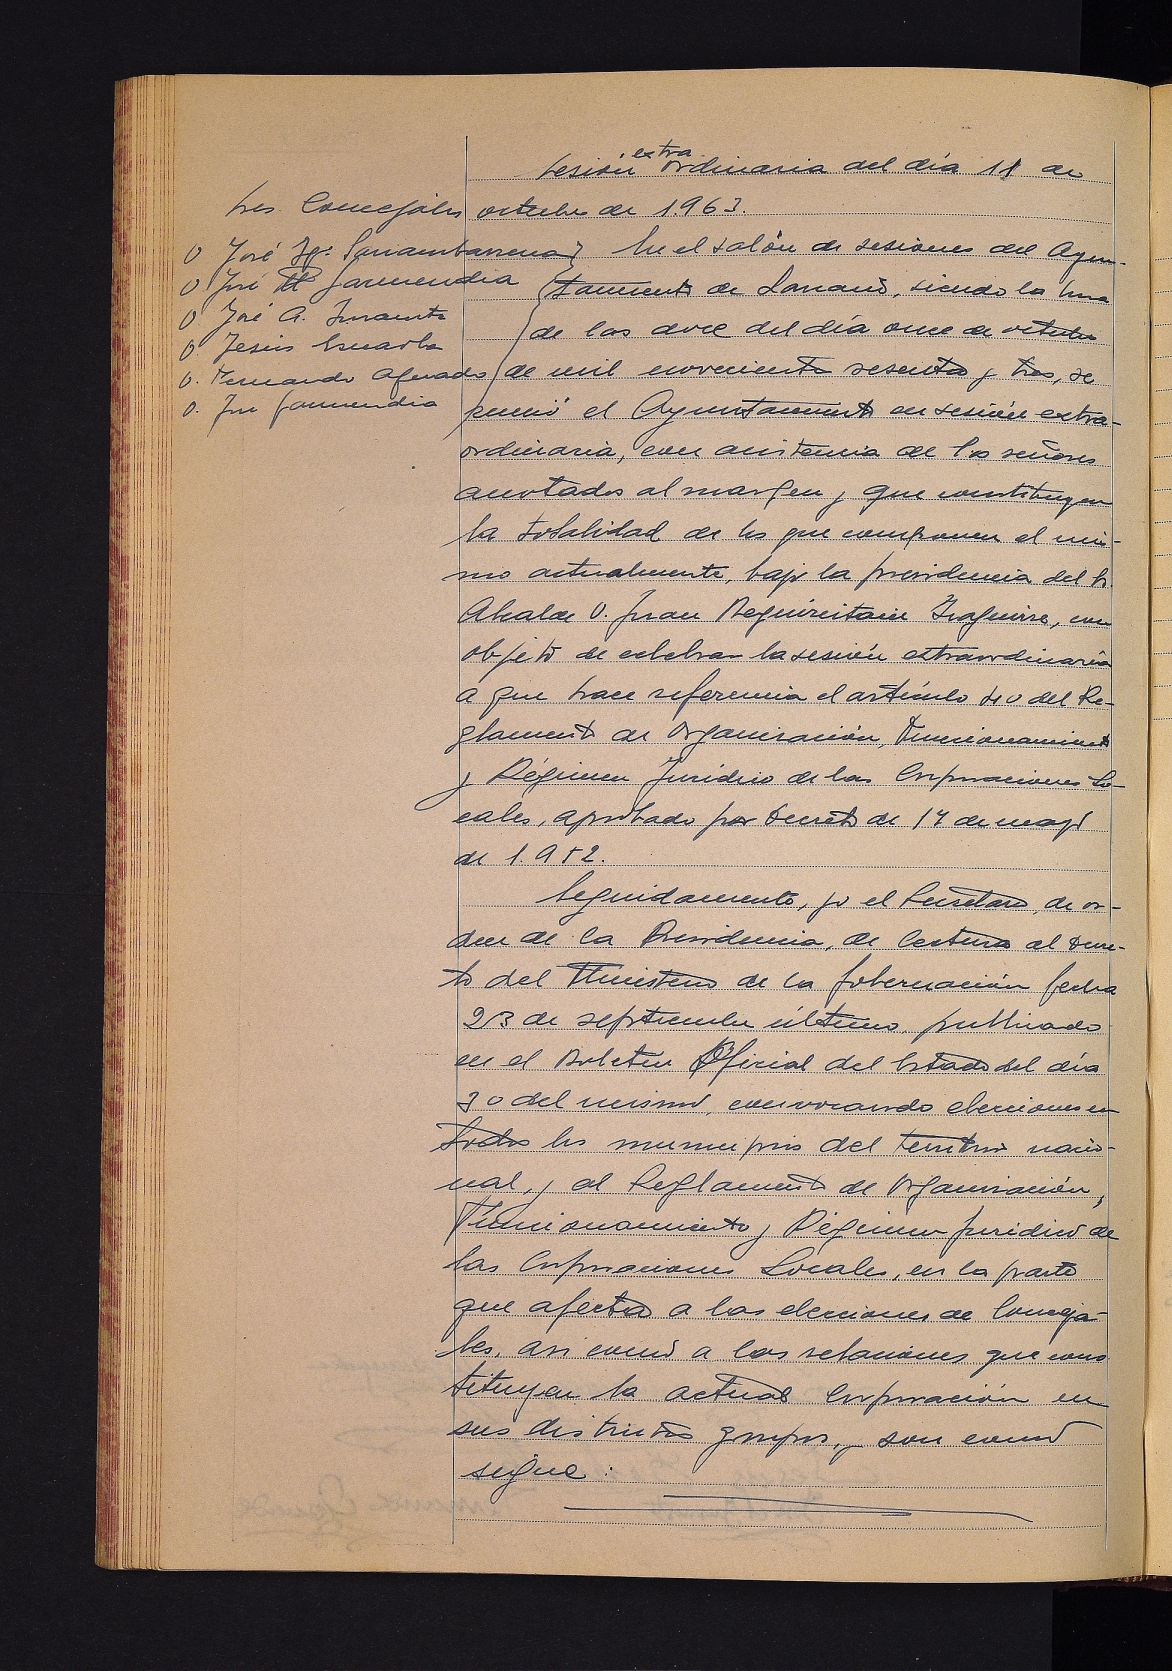 Sesión extraordinaria del día 11 de
octubre de 1.963.
Sres. Concejales
D. José Ig.
D. José Mª Garmendia
D. José A.
D. Jesús
D. Fernando Aguado
D. Juan Garmendia
En el salón de sesiones del Ayun-
tamiento de Larraul, siendo la hora
de las doce del día once de octubre
de mil novecientos sesenta y tres, se
reunió el Ayuntamiento en sesión extra-
ordinaria, con asistencia de los señores
anotados al margen y que constituyen
la totalidad de los que componen el mis-
mo actualmente, bajo la presidencia del Sr.
Alcalde D. Juan Beguiristain Izaguirre, con
objeto de celebrar la sesión extraordinaria
a que hace referencia el artículo 40 del Re-
glamento de Organización, Funcionamiento
y Régimen Jurídico de las Corporaciones Lo-
cales, aprobado por Decreto de 17 de mayo
de 1.952.
Seguidamente, yo el Secretario, de or-
den de la Presidencia, di lectura al Decre-
to del Ministerio de la Gobernación fecha
23 de septiembre último, publicado
en el Boletín Oficial del Estado del día
30 del mismo, convocando elecciones en
todos los municipios del territorio nacio-
nal, y al Reglamento de Organización,
Funcionamiento y Régimen Jurídico de
las Corporaciones Locales, en la parte
que afecta a las elecciones de Conceja-
les, asi como a las relaciones que cons
tituyen la actual Corporación en
sus distintos grupos, y son como
sigue: